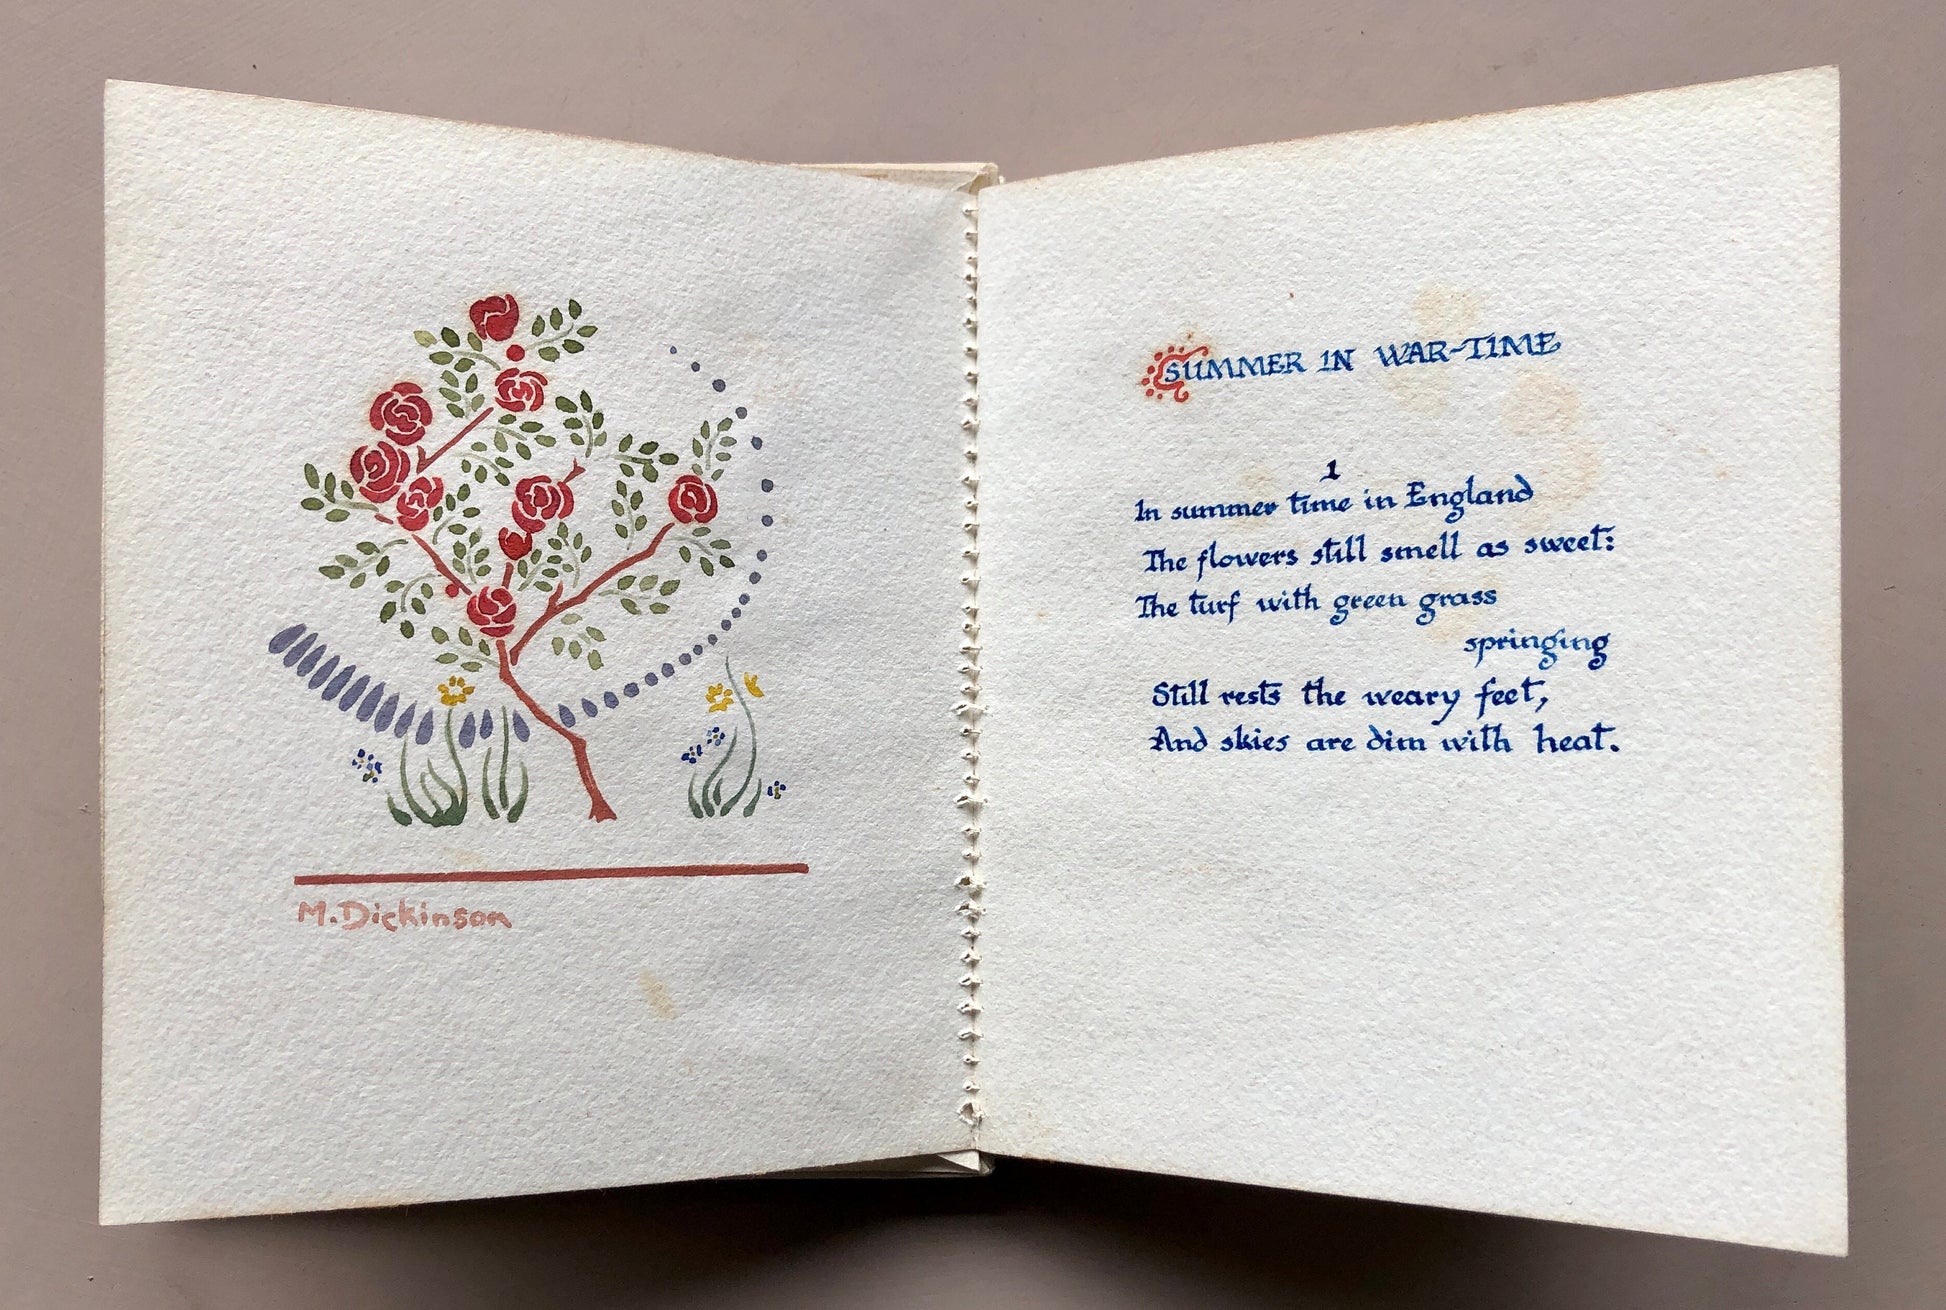 M. Dickinson
SUMMER IN WAR-TIME
1
In summer time in England
The flowers still smell as sweet:
The turf with green grass
springing
Still rests the weary feet,
And skies are dim with heat.